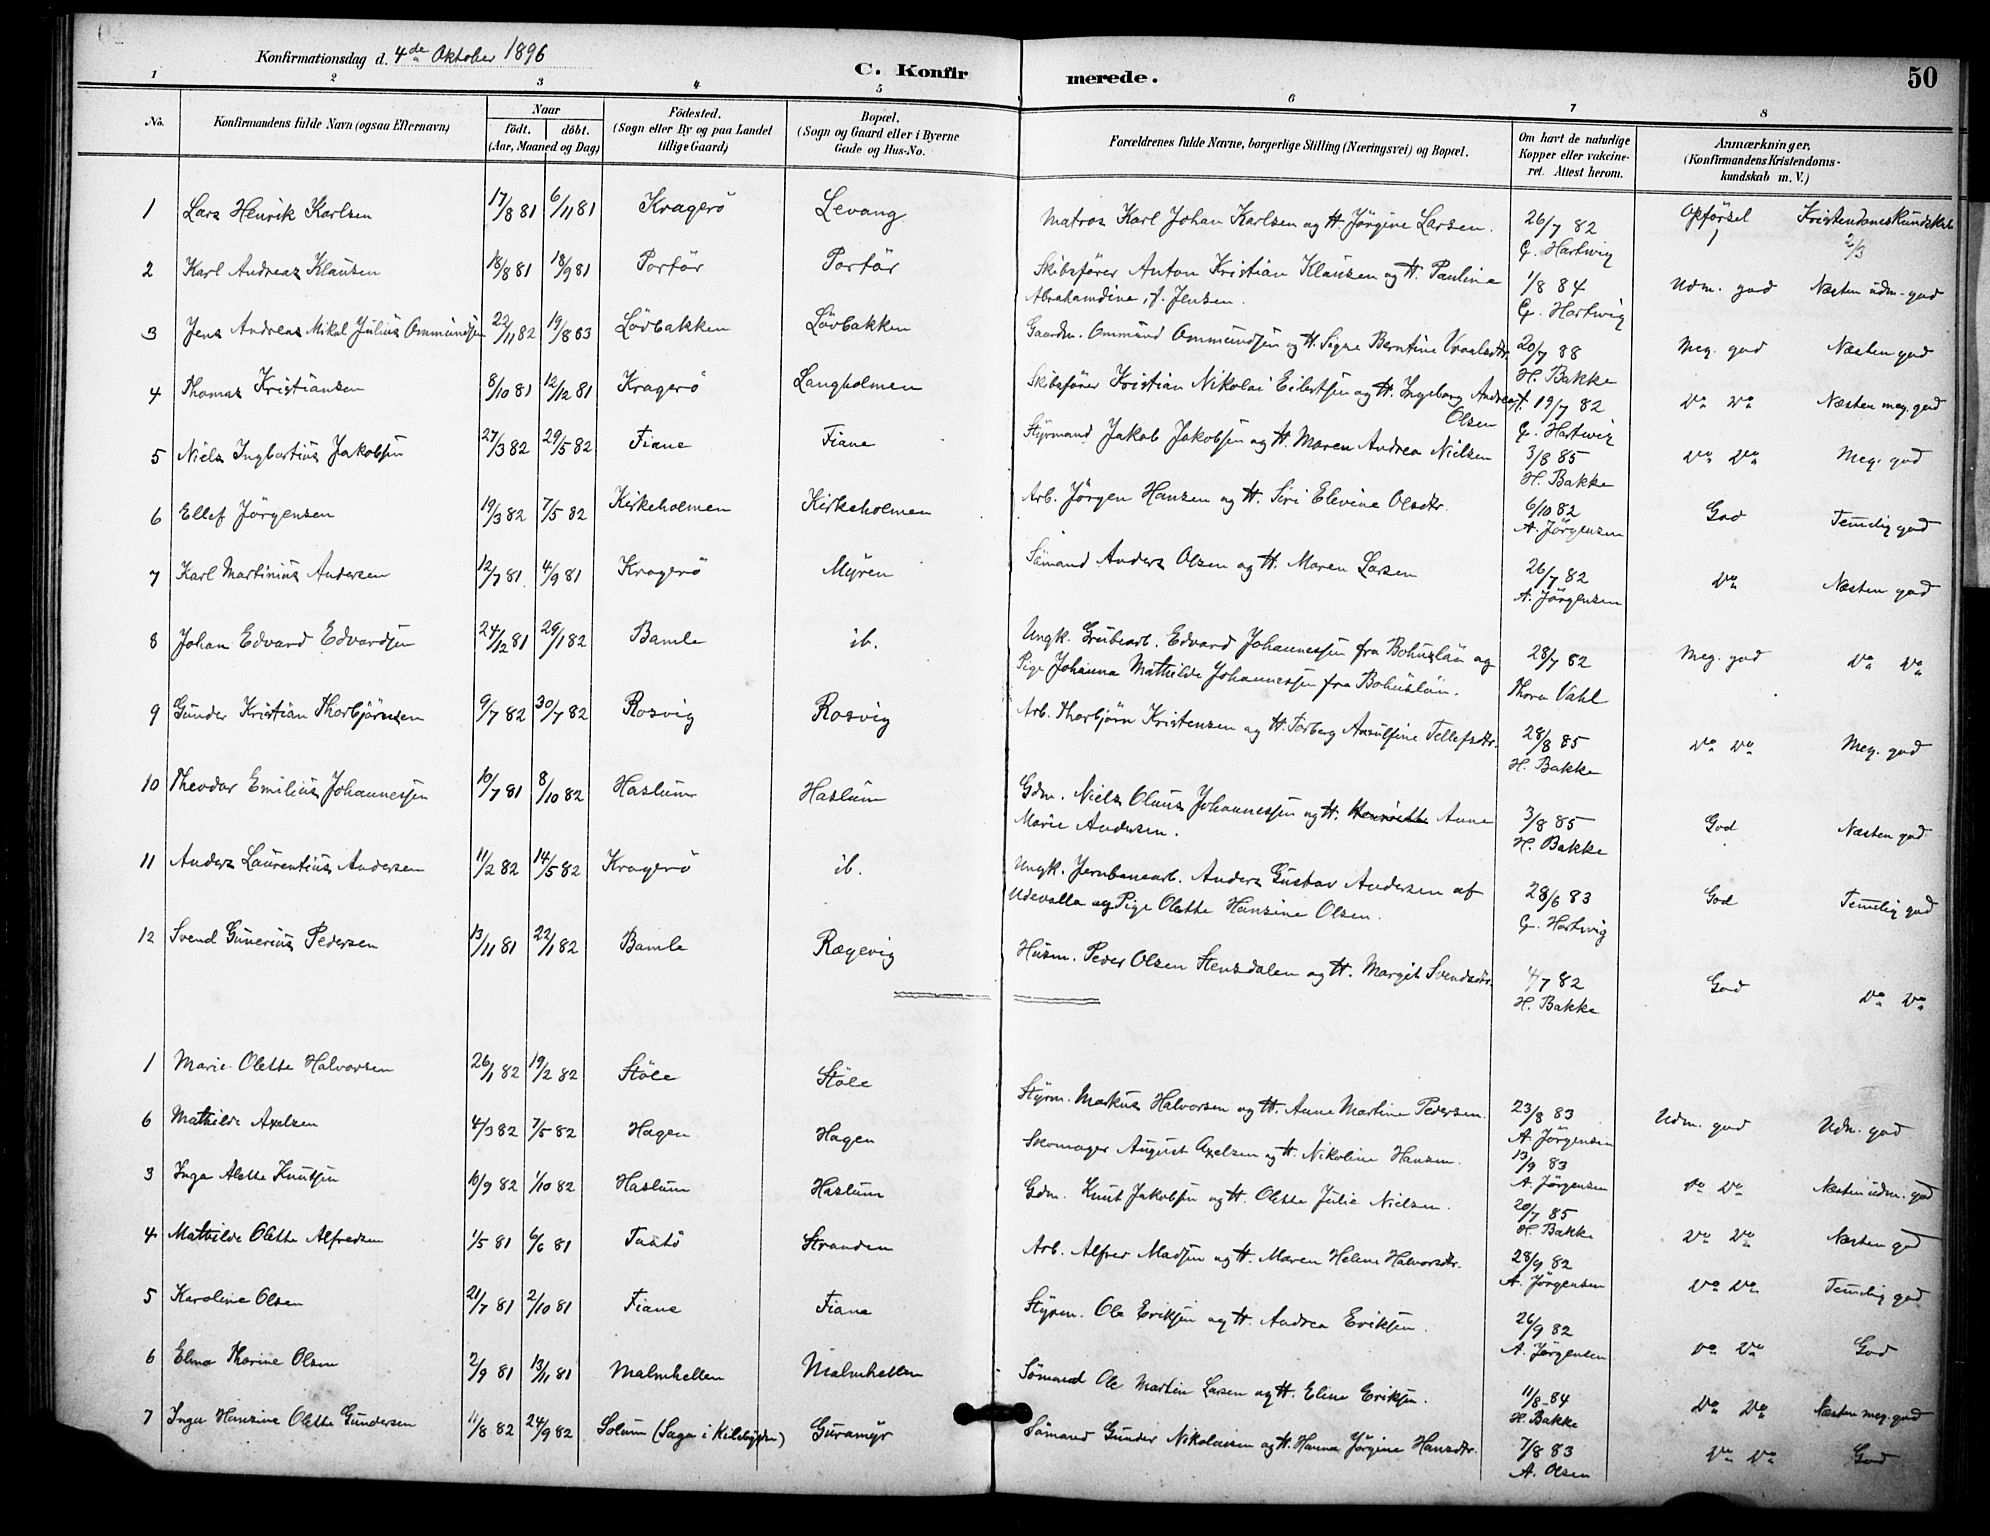 Konfirmationsdag d. 4de Oktober 1896
C. Konfirmerede.
50
1 2 3 4 5 6 7 8
No. Konfirmandens fulde Navn (ogsaa Efternavn) Naar födt. döbt. (Aar, Maaned og Dag) Födested. (Sogn eller By og paa Landet tillige Gaard) Bopæl. (Sogn og Gaard eller i Byerne Gade og Hus-No. Forældrenes fulde Navne, borgerlige Stilling (Næringsvei) og Bopæl. Om havt de naturlige Kopper eller vakcineret. Attest herom. Anmærkninger, (Konfirmandens Kristendomskundskab m. V.)
Opförsel Kristendomskundskab
1 Lars Henrik Karlsen 17/8 81 6/11 81 Kragerö Levang Matros Karl Johan Karlsen og H. Jörgine Larsen. 26/7 82 G. Hartwig 1 2/3
2 Karl Andreas Klausen 18/8 81 18/9 81 Portör Portör Skibsförer Anton Kristian Klausen og H. Pauline Abrahamdine, f. Jensen. 1/8 84 G. Hartwig Udm. god Næsten udm. god
3 Jens Andreas Mikal Julius Ommundsen 22/11 82 19/8 83 Lövbakken Lövbakken Gaardm. Ommund Ommundsen og H. Signe Berntine Vraalsdtr. 20/7 88 H. Bakke Meg. god Næsten god
4 Thomas Kristiansen 8/10 81 12/12 81 Kragerö Langholmen Skibsförer Kristian Nikolai Eilertsen og H. Ingeborg Andrea Olsen 19/7 82 G. Hartwig Do Do Næsten meg. god
5 Niels Ingbertius Jakobsen 27/3 82 29/5 82 Fiane Fiane Styrmand Jakob Jakobsen og H. Maren Andrea Nielsen 3/8 85 H. Bakke Do Do Meg. god
6 Ellef Jörgensen 19/3 82 7/5 82 Kirkeholmen Kirkeholmen Arb. Jörgen Hansen og H. Siri Elevine Olsdtr. 6/10 82 A. Jörgensen God Temelig god
7 Karl Martinius Andersen 12/7 81. 4/9 81 Kragerö Myren Sömand Anders Olsen og H. Maren Larsen 26/7 82 A. Jörgensen Do Næsten god
8 Johan Edvard Edvardsen 24/12 81 29/1 82 Bamle ib. Ungk. Grubearb. Edvard Johannessen fra Bohuslän og Pige Johanna Mathilde Johannessen fra Bohuslän. 28/7 82 Thora Vahl Meg. god Do Do
9 Gunder Kristian Thorbjörnsen 9/7 82 30/7 82 Rosvig Rosvig Arb. Thorbjörn Kristensen og H. Torborg Aasulfine Tellefsdtr. 28/8 85 H. Bakke Do Do Meg. god
10 Theodor Emilius Johannessen 10/7 81 8/10 82 Haslum Haslum Gdm. Niels Olaus Johannessen og H. Henriette Anne Marie Andersen. 3/8 85 H. Bakke God Næsten god
11 Anders Laurentius Andersen 11/2 82 14/5 82 Kragerö ib. Ungk. Jernbanearb. Anders Gustav Andersen af Udevalla og Pige Olette Hansine Olsen. 28/6 83 G. Hartwig God Temelig god
12 Svend Gunerius Pedersen 13/11 81 22/1 82 Bamle Rægevig Husm. Peder Olsen Stensdalen og H. Margit Svendsdtr. 4/7 82 H. Bakke God Do Do
1 Marie Olette Halvorsen 26/1 82 19/2 82 Stöle Stöle Styrm. Markus Halvorsen og H. Anne Martine Pedersen. 23/8 83 A. Jörgensen Udm. god Udm. god
6 Mathilde Axelsen 4/3 82 7/5 82 Hagen Hagen Skomager August Axelsen og H. Nikoline Hansen. 13/9 83 A. Jörgensen Do Do Næsten udm. god
3 Inga Alette Knutsen 10/9 82 1/10 82 Haslum Haslum Gdm. Knut Jakobsen og H. Olette Julie Nielsen. 20/7 85 H. Bakke Do Do Næsten god
4 Mathilde Olette Alfredsen 1/5 81 6/6 81 Taatö Stranden Arb. Alfred Madsen og H. Maren Helene Halvorsdtr. 28/9 82 A. Jörgensen Do Do Temelig god
5 Karoline Olsen 21/7 81 2/10 81 Fiane Fiane Styrm. Ole Eriksen og H. Andrea Eriksen. 26/9 82 A. Jörgensen Do Do God
6 Elina Thorine Olsen 2/9 81 13/11 81 Malmhellen Malmhellen Sömand Ole Martin Larsen og H. Eline Eriksen. 11/8 84 H. Bakke Do Do Næsten meg. god
7 Inga Hansine Olette Gundersen 11/8 82 24/9 82 Solum (Saga i Kilebygden) Guramyr Sömand Gunder Nikolaisen og H. Hanna Jörgine Hansdtr. 7/8 83 A. Olsen Do Do God